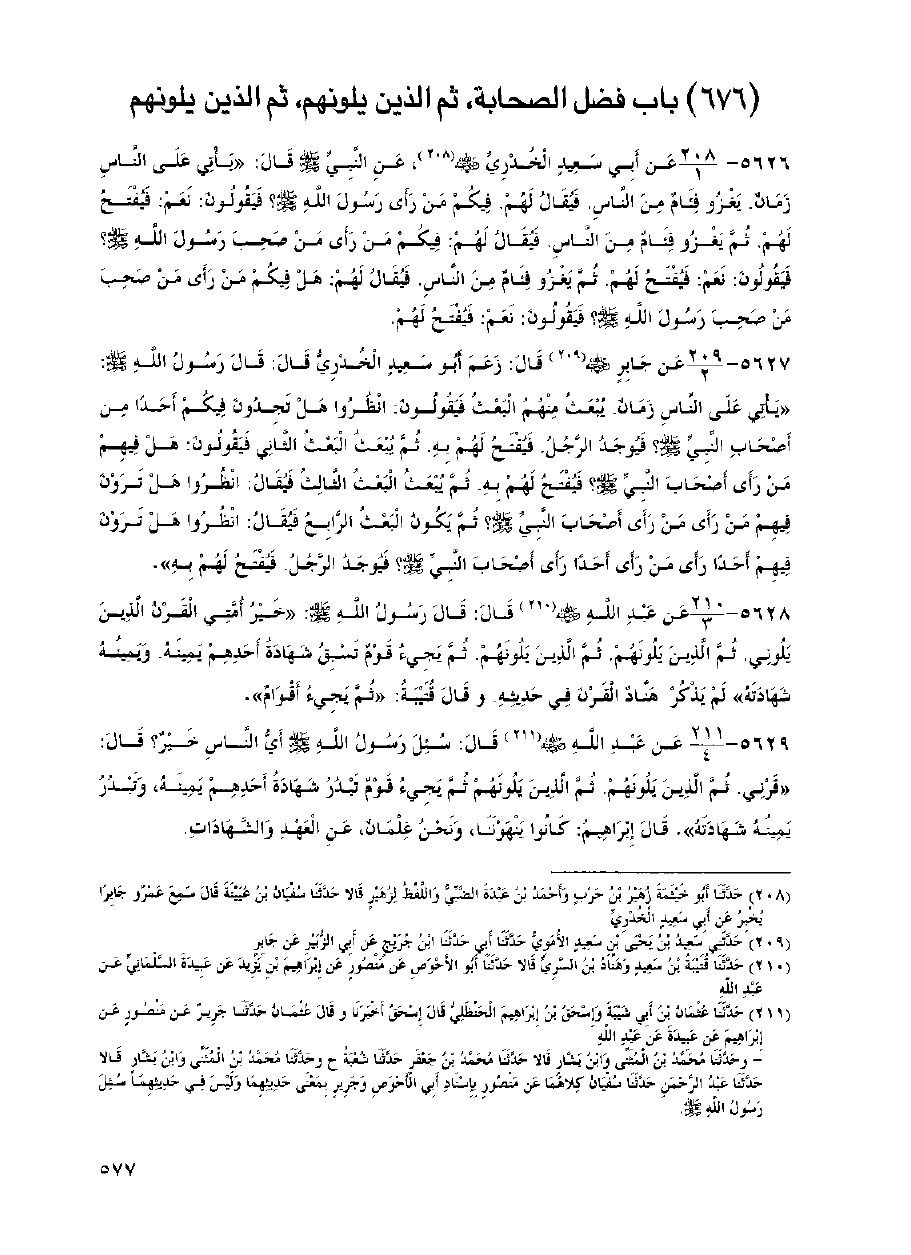 (٦٧٦) باب فضل الصحابة، ثم الذين يلونهم، ثم الذين يلونهم
٥٦٢٦- ٢٠٨/١ عَن أَبِي سَعِيدٍ الْخُدْرِيِّ ﷺ(٢٠٨)، عَنِ النَّبِيِّ ﷺ قَالَ: «يَأْتِي عَلَى النَّاسِ
زَمَانٌ. يَغْزُو فِئَامٌ مِنَ النَّاسِ. فَيُقَالُ لَهُمْ. فِيكُمْ مَنْ رَأَى رَسُولَ اللَّهِ ﷺ؟ فَيَقُولُونَ: نَعَمْ: فَيُفْتَحُ
لَهُمْ. ثُمَّ يَغْزُو فِئَامٌ مِنَ النَّاسِ. فَيُقَالُ لَهُمْ: فِيكُمْ مَنْ رَأَى مَنْ صَحِبَ رَسُولَ اللَّهِ ﷺ؟
فَيَقُولُونَ: نَعَمْ: فَيُفْتَحُ لَهُمْ. ثُمَّ يَغْزُو فِئَامٌ مِنَ النَّاسِ. فَيُقَالُ لَهُمْ: هَلْ فِيكُمْ مَنْ رَأَى مَنْ صَحِبَ
مَنْ صَحِبَ رَسُولَ اللَّهِ ﷺ؟ فَيَقُولُونَ: نَعَمْ: فَيُفْتَحُ لَهُمْ.
٥٦٢٧- ٢٠٩/٢ عَن جَابِرٍ ﷺ(٢٠٩) قَالَ: زَعَمَ أَبُو سَعِيدٍ الْخُدْرِيُّ قَالَ: قَالَ رَسُولُ اللَّهِ ﷺ:
«يَأْتِي عَلَى النَّاسِ زَمَانٌ. يُبْعَثُ مِنْهُمُ الْبَعْثُ فَيَقُولُونَ: انْظُرُوا هَلْ تَجِدُونَ فِيكُمْ أَحَدًا مِنْ
أَصْحَابِ النَّبِيِّ ﷺ؟ فَيُوجَدُ الرَّجُلُ. فَيُفْتَحُ لَهُمْ بِهِ. ثُمَّ يُبْعَثُ الْبَعْثُ الثَّانِي فَيَقُولُونَ: هَلْ فِيهِمْ
مَنْ رَأَى أَصْحَابَ النَّبِيِّ ﷺ؟ فَيُفْتَحُ لَهُمْ بِهِ. ثُمَّ يُبْعَثُ الْبَعْثُ الثَّالِثُ فَيُقَالُ: انْظُرُوا هَلْ تَرَوْنَ
فِيهِمْ مَنْ رَأَى مَنْ رَأَى أَصْحَابَ النَّبِيِّ ﷺ؟ ثُمَّ يَكُونُ الْبَعْثُ الرَّابِعُ فَيُقَالُ: انْظُرُوا هَلْ تَرَوْنَ
فِيهِمْ أَحَدًا رَأَى مَنْ رَأَى أَحَدًا رَأَى أَصْحَابَ النَّبِيِّ ﷺ؟ فَيُوجَدُ الرَّجُلُ. فَيُفْتَحُ لَهُمْ بِهِ».
٥٦٢٨- ٢١٠/٣ عَن عَبْدِ اللَّهِ ﷺ(٢١٠) قَالَ: قَالَ رَسُولُ اللَّهِ ﷺ: «خَيْرُ أُمَّتِي الْقَرْنُ الَّذِينَ
يَلُونِي. ثُمَّ الَّذِينَ يَلُونَهُمْ. ثُمَّ الَّذِينَ يَلُونَهُمْ. ثُمَّ يَجِيءُ قَوْمٌ تَسْبِقُ شَهَادَةُ أَحَدِهِمْ يَمِينَهُ. وَيَمِينُهُ
شَهَادَتَهُ» لَمْ يَذْكُرْ هَنَّادٌ الْقَرْنَ فِي حَدِيثِهِ. و قَالَ قُتَيْبَةُ: «ثُمَّ يَجِيءُ أَقْوَامٌ».
٥٦٢٩- ٢١١/٤ عَن عَبْدِ اللَّهِ ﷺ(٢١١) قَالَ: سُئِلَ رَسُولُ اللَّهِ ﷺ أَيُّ النَّاسِ خَيْرٌ؟ قَالَ:
«قَرْنِي. ثُمَّ الَّذِينَ يَلُونَهُمْ. ثُمَّ الَّذِينَ يَلُونَهُمْ ثُمَّ يَجِيءُ قَوْمٌ تَبْدُرُ شَهَادَةُ أَحَدِهِمْ يَمِينَهُ، وَتَبْدُرُ
يَمِينُهُ شَهَادَتَهُ». قَالَ إِبْرَاهِيمُ: كَانُوا يَنْهَوْنَنَا، وَنَحْنُ غِلْمَانٌ، عَنِ الْعَهْدِ وَالشَّهَادَاتِ.
(٢٠٨) حَدَّثَنَا أَبُو خَيْثَمَةَ زُهَيْرُ بْنُ حَرْبٍ وَأَحْمَدُ بْنُ عَبْدَةَ الضَّبِّيُّ وَاللَّفْظُ لِزُهَيْرٍ قَالَا حَدَّثَنَا سُفْيَانُ بْنُ عُيَيْنَةَ قَالَ سَمِعَ عَمْرٌو جَابِرًا
يُخْبِرُ عَنْ أَبِي سَعِيدٍ الْخُدْرِيِّ
(٢٠٩) حَدَّثَنِي سَعِيدُ بْنُ يَحْيَى بْنِ سَعِيدٍ الْأُمَوِيُّ حَدَّثَنَا أَبِي حَدَّثَنَا ابْنُ جُرَيْجٍ عَنْ أَبِي الزُّبَيْرِ عَنْ جَابِرٍ
(٢١٠) حَدَّثَنَا قُتَيْبَةُ بْنُ سَعِيدٍ وَهَنَّادُ بْنُ السَّرِيِّ قَالَا حَدَّثَنَا أَبُو الْأَحْوَصِ عَنْ مَنْصُورٍ عَنْ إِبْرَاهِيمَ بْنِ يَزِيدَ عَنْ عَبِيدَةَ السَّلْمَانِيِّ عَنْ
عَبْدِ اللَّهِ
(٢١١) حَدَّثَنَا عُثْمَانُ بْنُ أَبِي شَيْبَةَ وَإِسْحَقُ بْنُ إِبْرَاهِيمَ الْحَنْظَلِيُّ قَالَ إِسْحَقُ أَخْبَرَنَا و قَالَ عُثْمَانُ حَدَّثَنَا جَرِيرٌ عَنْ مَنْصُورٍ عَنْ
إِبْرَاهِيمَ عَنْ عَبِيدَةَ عَنْ عَبْدِ اللَّهِ
– وحَدَّثَنَا مُحَمَّدُ بْنُ الْمُثَنَّى وَابْنُ بَشَّارٍ قَالَا حَدَّثَنَا مُحَمَّدُ بْنُ جَعْفَرٍ حَدَّثَنَا شُعْبَةُ ح وحَدَّثَنَا مُحَمَّدُ بْنُ الْمُثَنَّى وَابْنُ بَشَّارٍ قَالَا
حَدَّثَنَا عَبْدُ الرَّحْمَنِ حَدَّثَنَا سُفْيَانُ كِلَاهُمَا عَنْ مَنْصُورٍ بِإِسْنَادِ أَبِي الْأَحْوَصِ وَجَرِيرٍ بِمَعْنَى حَدِيثِهِمَا وَلَيْسَ فِي حَدِيثِهِمَا سُئِلَ
رَسُولُ اللَّهِ ﷺ.
٥٧٧